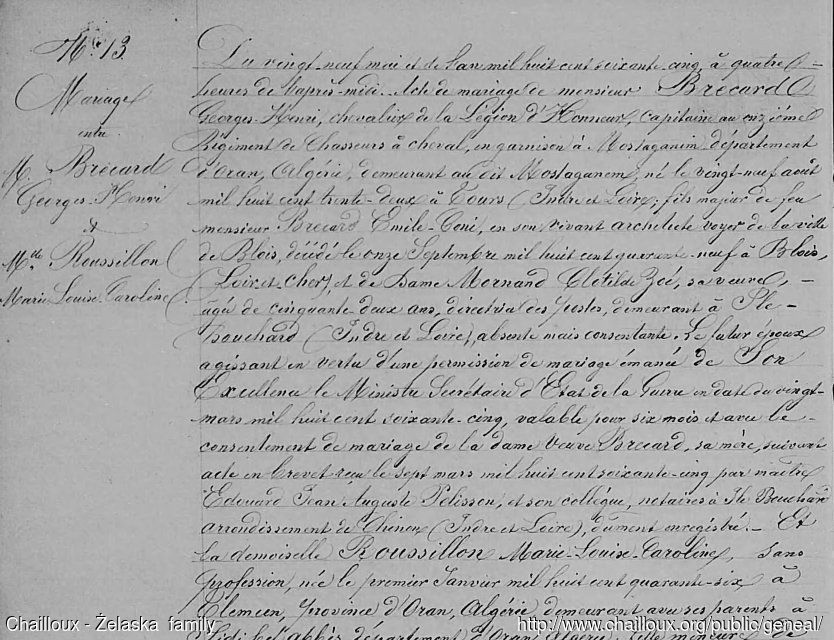 N° 13
Mariage
entre
M. Brécard
Georges-Henri
&
Mlle Roussillon
Marie-Louise-Caroline
Du vingt-neuf mai et de l'an mil huit cent soixante-cinq, à quatre
heures de l'après-midi. Acte de mariage de monsieur Brécard
Georges-Henri, chevalier de la Légion d'Honneur, Capitaine au onzième
Régiment de Chasseurs à cheval, en garnison à Mostaganem, département
d'Oran, (Algérie), demeurant au dit Mostaganem, né le vingt-neuf août
mil huit cent trente-deux à Tours (Indre et Loire); fils majeur de feu
monsieur Brécard Emile, en son vivant architecte voyer de la ville
de Blois, décédé le onze Septembre mil huit cent quarante-neuf à Blois,
(Loir et Cher) et de Dame Mornand Clotilde Zoé, sa veuve, -
âgée de cinquante deux ans, directrice des postes, demeurant à Ile-
Bouchard (Indre et Loire), absente mais consentante. Le futur époux
agissant en vertu d'une permission de mariage émanée de Son
Excellence le Ministre Secrétaire d'Etat de la Guerre en date du vingt-
mars mil huit cent soixante-cinq, valable pour six mois et avec le -
consentement de mariage de la dame Veuve Brécard, sa mère, suivant
acte en brevet reçu le sept mars mil huit cent soixante-cinq par maître
Edouard Jean Auguste Pelisson, et son collègue, notaires à Ile Bouchard
arrondissement de Chinon (Indre et Loire), dûment enregistré. - Et
la demoiselle Roussillon Marie-Louise-Caroline, sans
profession, née le premier Janvier mil huit cent quarante-six à
Tlemcen, province d'Oran, Algérie, demeurant avec ses parents à
Sidi bel Abbès, département d'Oran, Algérie, fille
Chailloux - Żelaska family
http://www.chailloux.org/public/geneal/